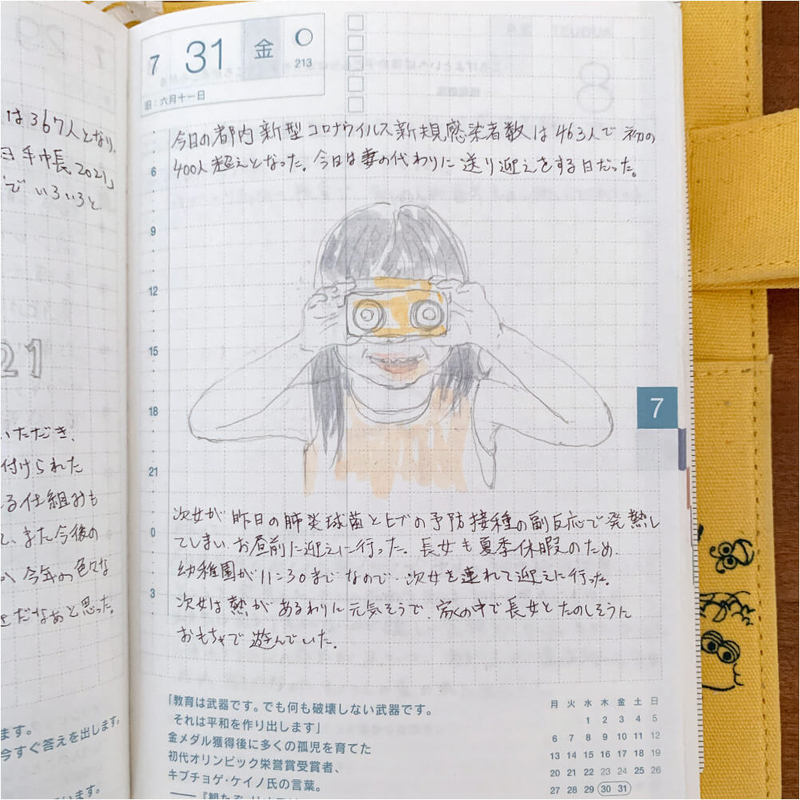 は367人となり、
日手帳2021」
でいろいろと
21
いただき、
付けられた
る仕組みも
また今後の
今年の色々な
だなぁと思った。
ます。
今すぐ答えを出します。
います。
7 31 金
213
旧:六月十一日
今日の都内新型コロナウイルス新規感染者数は463人で初の
400人超えとなった。今日は妻の代わりに送り迎えをする日だった。
6
9
12
15
18
21
0
3
7
次女が昨日の肺炎球菌とヒブの予防接種の副反応で発熱し
てしまい、お昼前に迎えに行った。長女も夏季休暇のため、
幼稚園が11:30までなので、次女を連れて迎えに行った。
次女は熱があるわりに元気そうで、家の中で長女とたのしそうに
おもちゃで遊んでいた。
「教育は武器です。でも何も破壊しない武器です。
それは平和を作り出します」
金メダル獲得後に多くの孤児を育てた
初代オリンピック栄誉賞受賞者、
キプチョゲ・ケイノ氏の言葉。
月 火 水 木 金 土 日
1 2 3 4 5
6 7 8 9 10 11 12
13 14 15 16 17 18 19
20 21 22 23 24 25 26
27 28 29 30 31